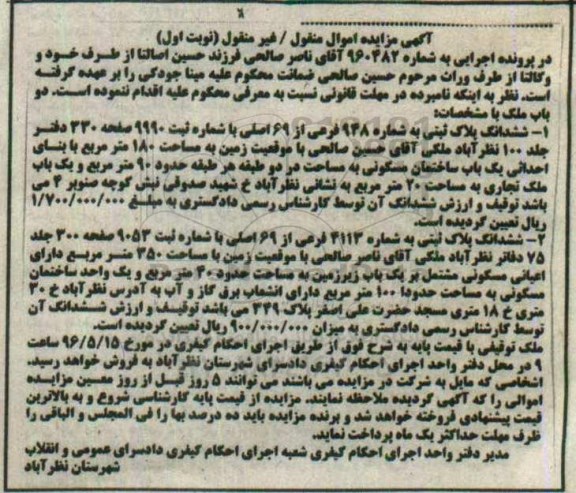 ٦
آگهی مزایده اموال منقول / غیر منقول (نوبت اول)
در پرونده اجرایی به شماره ۹۶۰۴۸۲ آقای ناصر صالحی فرزند حسین اصالتا از طرف خود و
وکالتا از طرف وراث مرحوم حسین صالحی ضمانت محکوم علیه مینا جودکی را بر عهده گرفته
است. نظر به اینکه نامبرده در مهلت قانونی نسبت به معرفی محکوم علیه اقدام ننموده است. دو
باب ملک با مشخصات:
۱- ششدانگ پلاک ثبتی به شماره ۹۴۸ فرعی از ۶۹ اصلی با شماره ثبت ۹۹۹۰ صفحه ۳۳۰ دفتر
جلد ۱۰۰ نظرآباد ملکی آقای حسین صالحی با موقعیت زمین به مساحت ۱۸۰ متر مربع با بنای
احداثی یک باب ساختمان مسکونی به مساحت در دو طبقه هر طبقه حدود ۹۰ متر مربع و یک باب
ملک تجاری به مساحت ۲۰ متر مربع به نشانی نظرآباد خ شهید صدوقی نبش کوچه صنوبر ۴ می
باشد توقیف و ارزش ششدانگ آن توسط کارشناس رسمی دادگستری به مبلغ ۱/۷۰۰/۰۰۰/۰۰۰
ریال تعیین گردیده است.
۲- ششدانگ پلاک ثبتی به شماره ۴۱۱۳ فرعی از ۶۹ اصلی با شماره ثبت ۹۰۵۳ صفحه ۳۰۰ جلد
۷۵ دفاتر نظرآباد ملکی آقای ناصر صالحی با موقعیت زمین با مساحت ۳۵۰ متر مربع دارای
اعیانی مسکونی مشتمل بر یک باب زیرزمین به مساحت حدود ۴۰ متر مربع و یک واحد ساختمان
مسکونی به مساحت حدودا ۱۰۰ متر مربع دارای انشعاب برق گاز و آب به آدرس نظرآباد خ ۳۰
متری خ ۱۸ متری مسجد حضرت علی اصغر پلاک ۳۴۹ می باشد توقیف و ارزش ششدانگ آن
توسط کارشناس رسمی دادگستری به میزان ۹۰۰/۰۰۰/۰۰۰ ریال تعیین گردیده است.
ملک توقیفی با قیمت پایه به شرح فوق از طریق اجرای احکام کیفری در مورخ ۹۶/۵/۱۵ ساعت
۹ در محل دفتر واحد اجرای احکام کیفری دادسرای شهرستان نظرآباد به فروش خواهد رسید.
اشخاصی که مایل به شرکت در مزایده می باشند می توانند ۵ روز قبل از روز معین مزایده
اموالی را که آگهی گردیده ملاحظه نمایند. مزایده از قیمت پایه کارشناسی شروع و به بالاترین
قیمت پیشنهادی فروخته خواهد شد و برنده مزایده باید ده درصد بها را فی المجلس و الباقی را
ظرف مهلت حداکثر یک ماه پرداخت نماید.
مدیر دفتر واحد اجرای احکام کیفری شعبه اجرای احکام کیفری دادسرای عمومی و انقلاب
شهرستان نظرآباد